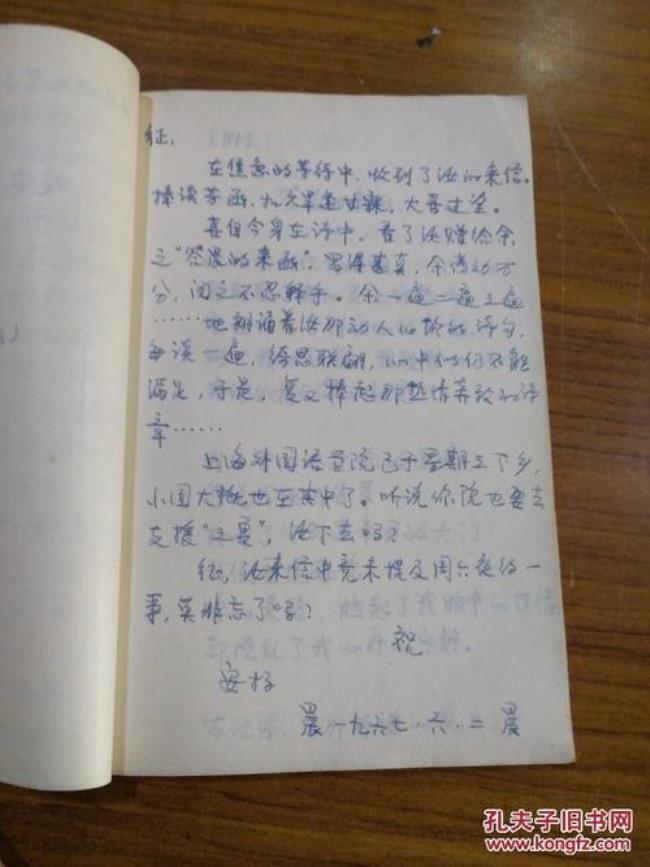 征:
在焦急的等待中,收到了汝的来信。
捧读芳函,如久旱逢甘霖,大喜过望。
喜自今身在诗中。看了汝赠给余
之"答晨的来函",写得甚真,余感动万
分,阅之不忍释手。余一遍二遍三遍
……地朗诵着汝那动人心怀的诗句,
每读一遍,绮思联翩,心中仍不能
满足,于是,复又捧起那热情奔放的诗
章……
上海外国语学院已于星期三下乡,
小国大概也在其中了。听说你院也要去
支援"三夏",汝下去吗?
征,汝来信中竟未提及周六夜约一
事,莫非忘了吗?
祝
安好
晨 一九六七·六·二 晨
孔夫子旧书网
www.kongfz.com